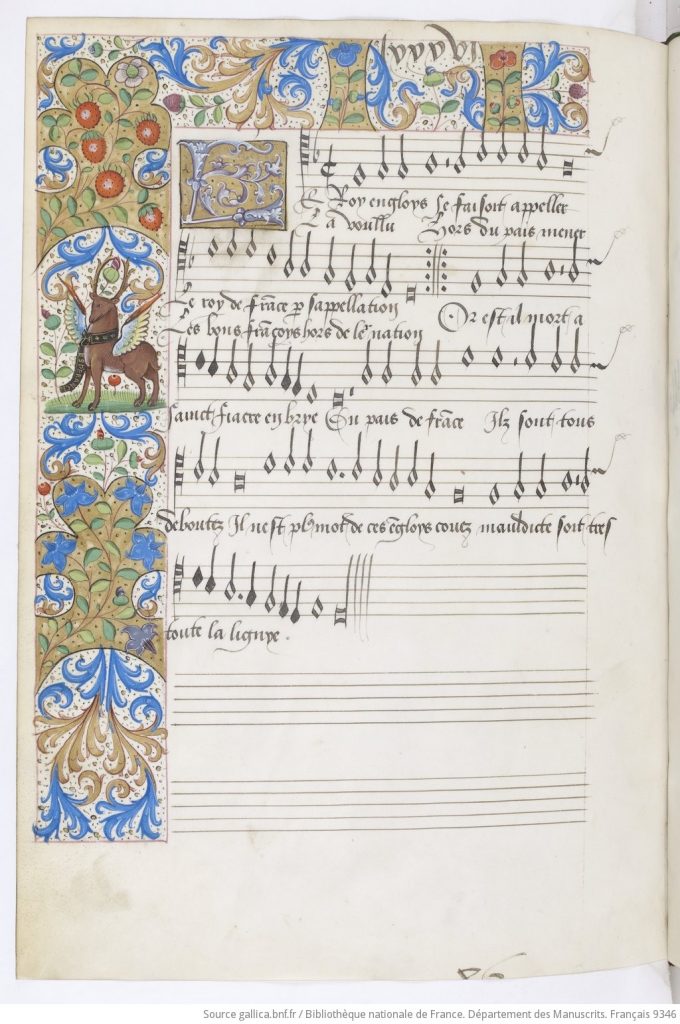 lxxxvi
LE Roy engloys se faisoit appeller
Il a voullu hors du pais mener
Le roy de frãce p sappellation
Les bons frãcoys hors de le nation Or est il mort a
sainct fiacre en brye Du pais de frãce Ilz sont tous
deboutez Il nest pl9 mot de ces ẽgloys couez mauldicte soit tres
toute la lignye.
Source gallica.bnf.fr / Bibliothèque nationale de France. Département des Manuscrits. Français 9346